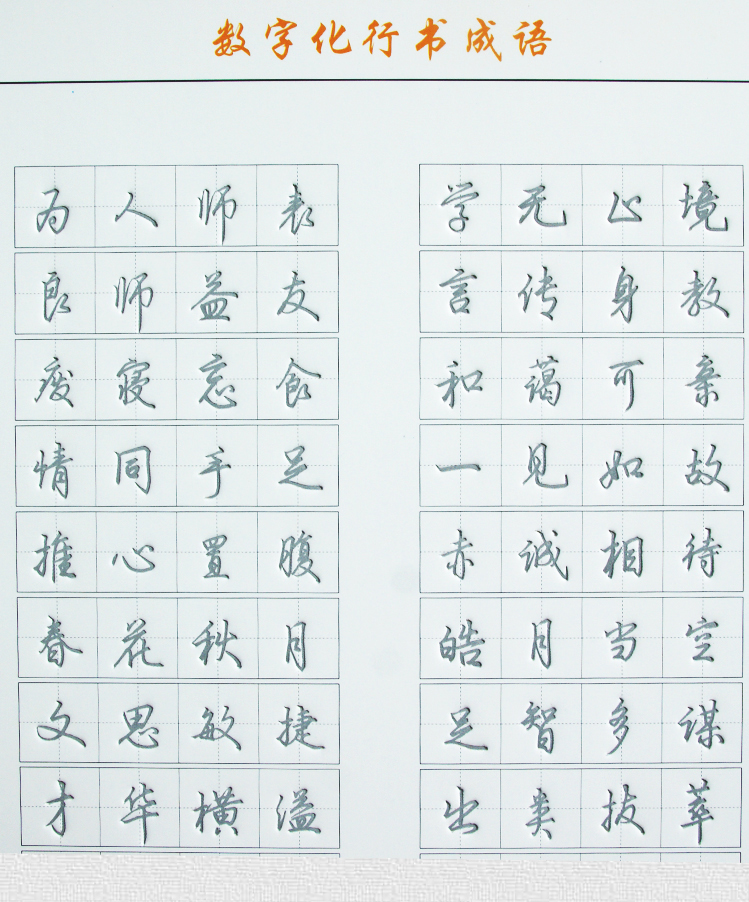 数字化行书成语
为人师表 学无止境
良师益友 言传身教
废寝忘食 和蔼可亲
情同手足 一见如故
推心置腹 赤诚相待
春花秋月 皓月当空
文思敏捷 足智多谋
才华横溢 出类拔萃